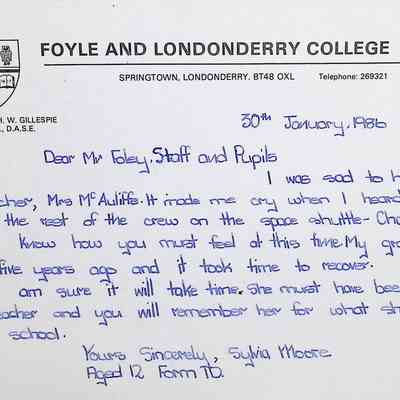 FOYLE AND LONDONDERRY COLLEGE
SPRINGTOWN, LONDONDERRY. BT48 OXL Telephone: 269321
H. W. GILLESPIE
., D.A.S.E.
30th January, 1986
Dear Mr Foley, Staff and Pupils
I was sad to h
cher, Mrs McAuliffe. It made me cry when I heard
the rest of the crew on the space shuttle - Cha
know how you must feel at this time. My gra
five years ago and it took time to recover.
am sure it will take time. She must have bee
eacher and you will remember her for what sh
school.
Yours Sincerely, Sylvia Moore
Aged 12 Form 1D.